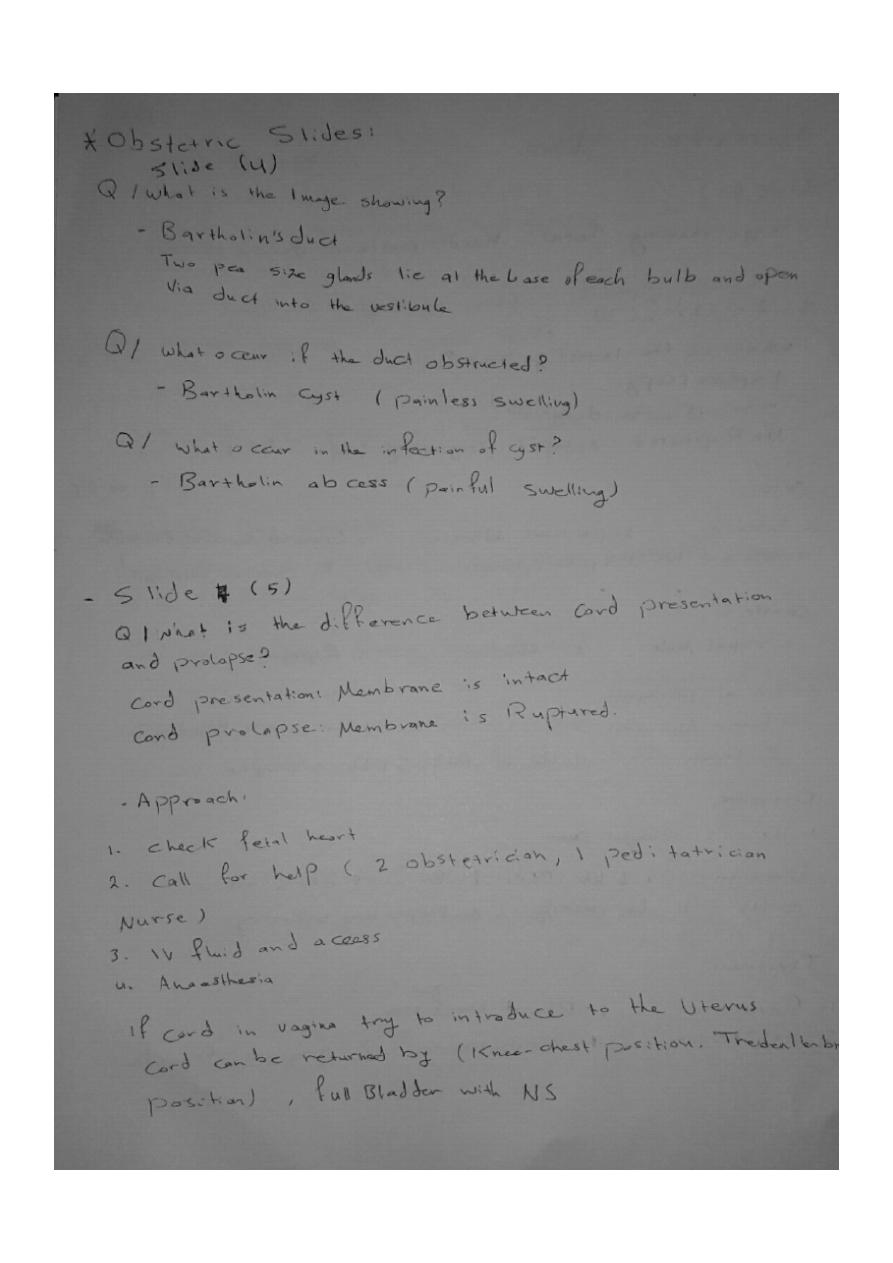 * Obstetric Slides:
Slide (4)
Q / What is the Image showing?
- Bartholin's duct
Two pea size glands lie at the base of each bulb and open
Via duct into the vestibule
Q / what occur if the duct obstructed?
- Bartholin Cyst ( painless swelling)
Q / what occur in the infection of cyst?
- Bartholin abcess ( painful swelling)
- Slide (5)
Q / What is the difference between Cord presentation
and prolapse?
Cord presentation: Membrane is intact
Cord prolapse: Membrane is Ruptured.
- Approach:
1. check fetal heart
2. Call for help ( 2 obstetrician, 1 peditatrician
Nurse )
3. IV fluid and access
4. Anaesthesia
If cord in vagina try to introduce to the Uterus
Cord can be returned by (Knee-chest position, Tredenlenbr
position) , full Bladder with NS